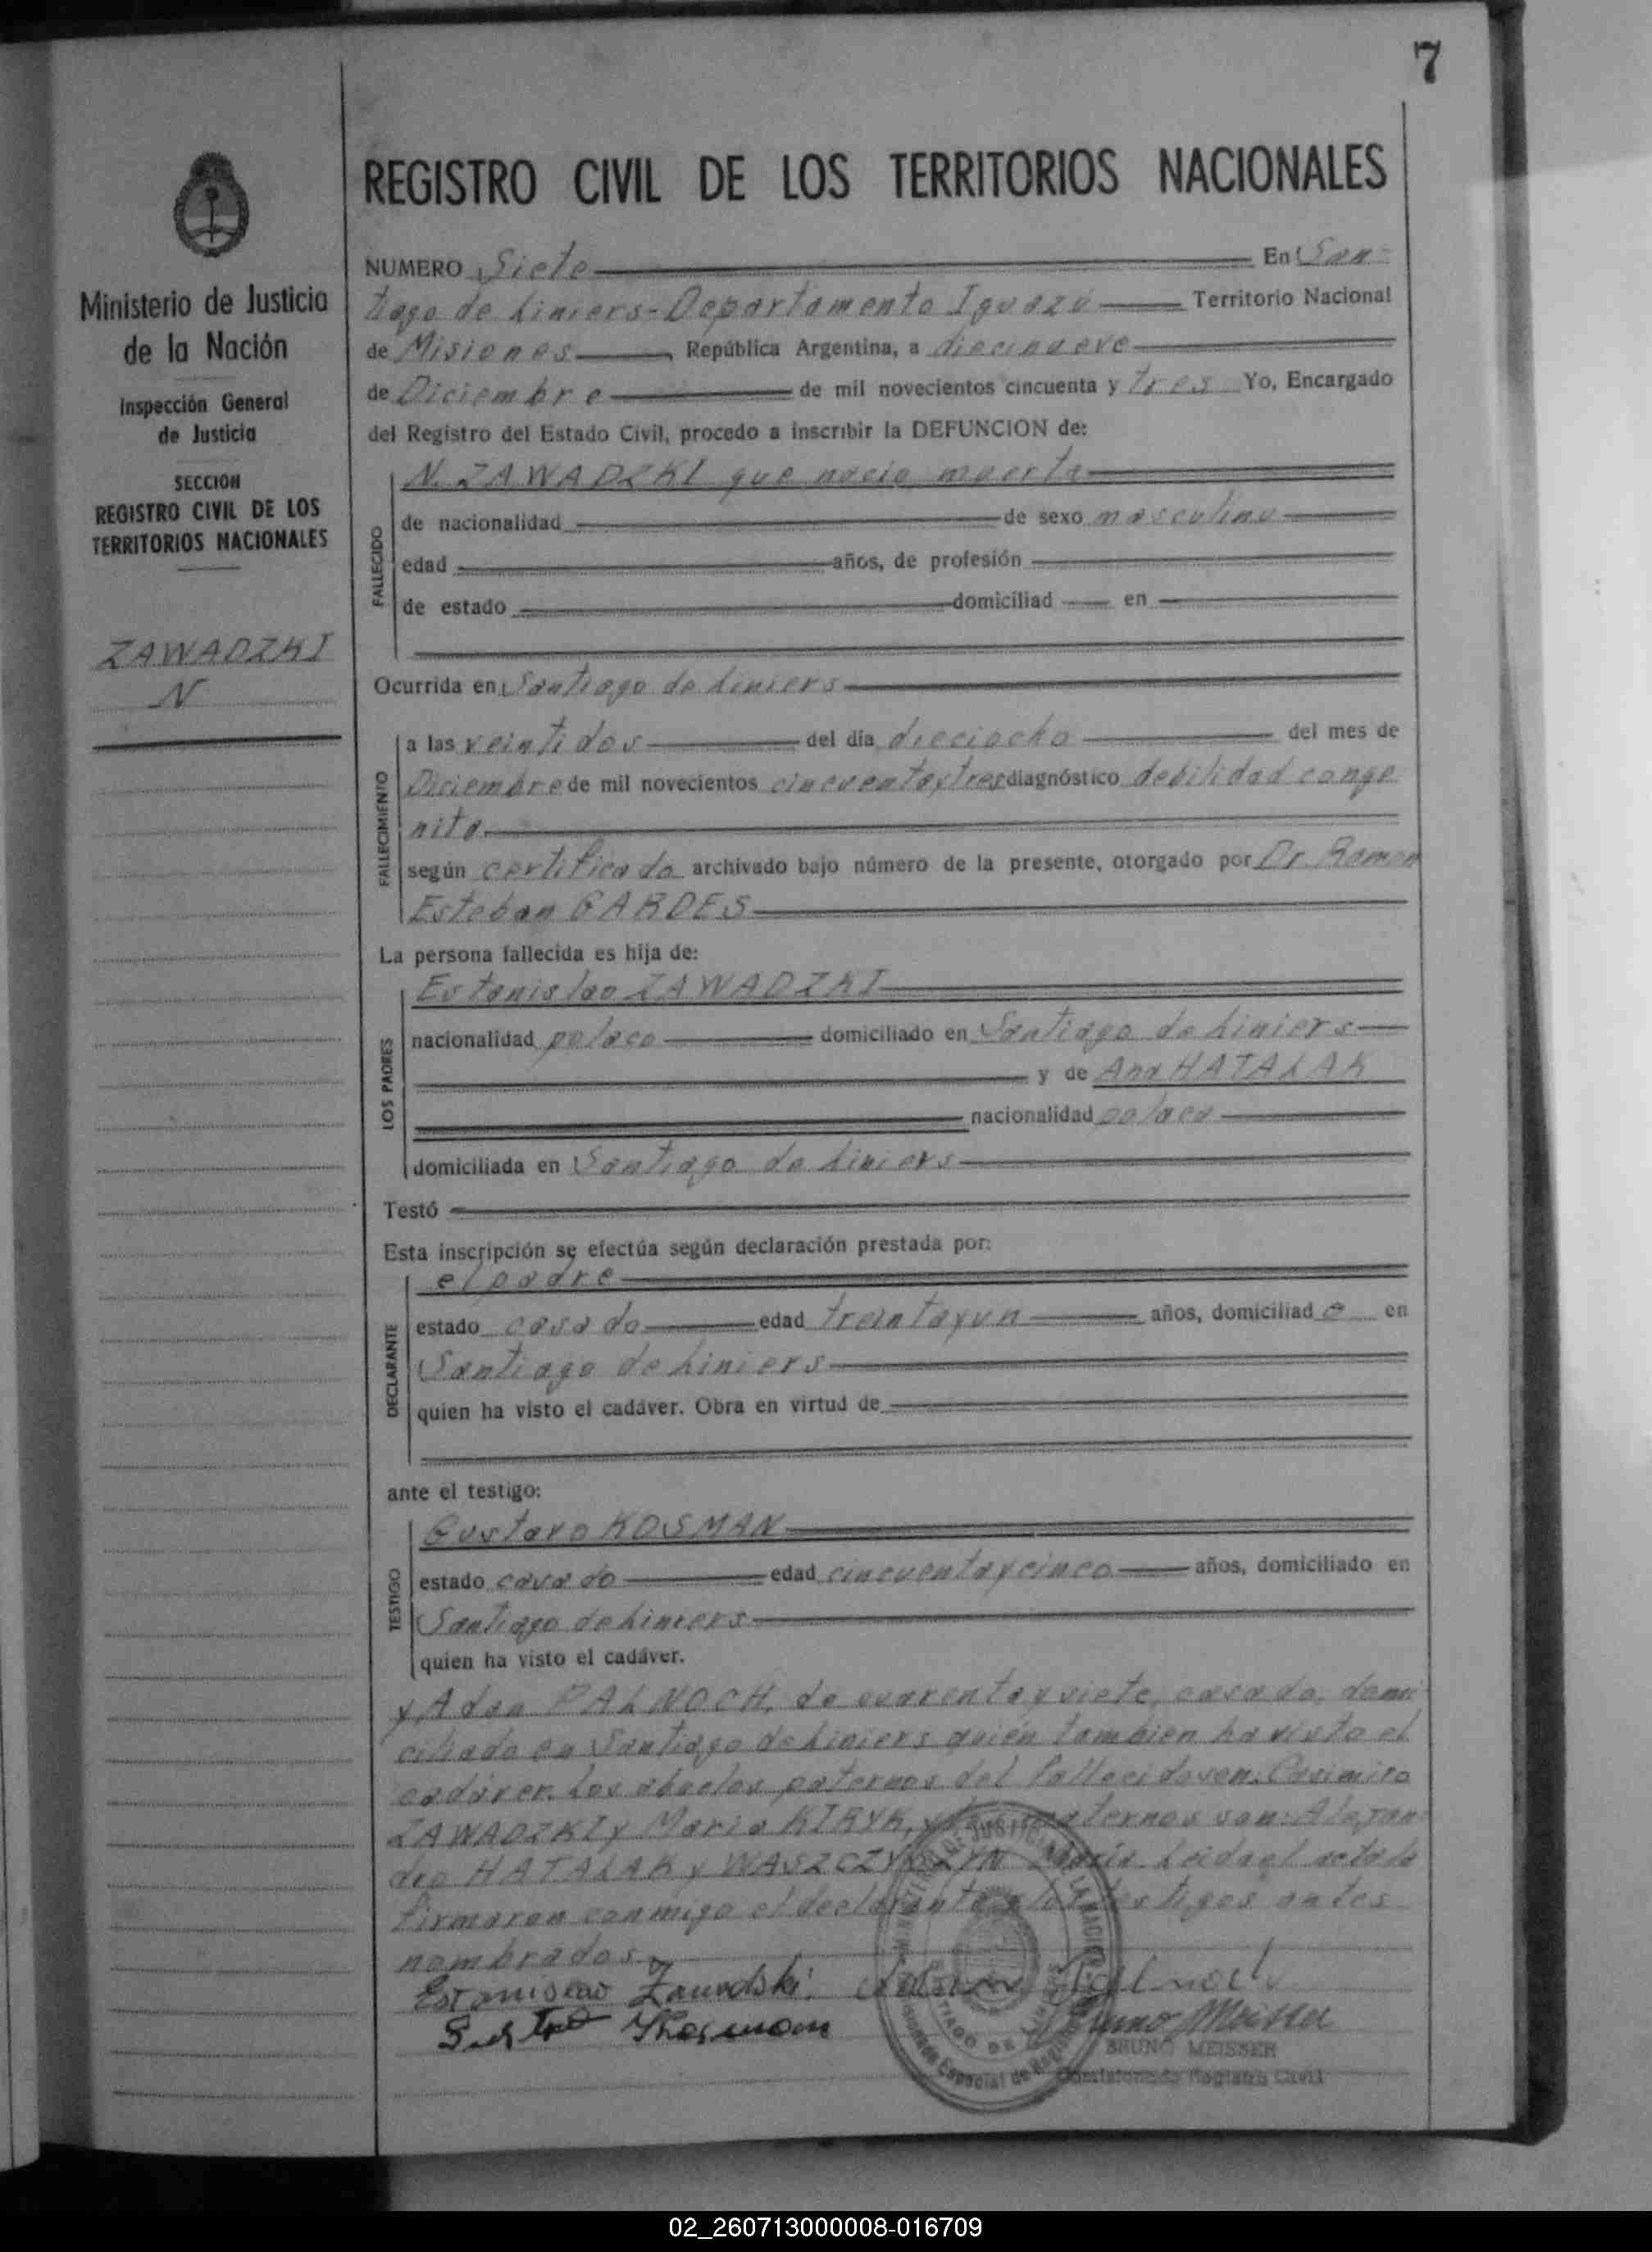 7
REGISTRO CIVIL DE LOS TERRITORIOS NACIONALES
Ministerio de Justicia
de la Nación
Inspección General
de Justicia
SECCION
REGISTRO CIVIL DE LOS
TERRITORIOS NACIONALES
ZAWADZKI
N
NUMERO Siete En San-
tiago de Liniers-Departamento Iguazú Territorio Nacional
de Misiones República Argentina, a diecinueve
de Diciembre de mil novecientos cincuenta y tres Yo, Encargado
del Registro del Estado Civil, procedo a inscribir la DEFUNCION de:
FALLECIDO
N. ZAWADZKI que nacio muerta
de nacionalidad de sexo masculino
edad años, de profesión
de estado domiciliad en
Ocurrida en Santiago de Liniers
FALLECIMIENTO
a las veintidos del día dieciocho del mes de
Diciembre de mil novecientos cincuentaytres diagnóstico debilidad conge
nita
según certificado archivado bajo número de la presente, otorgado por Dr Ramon
Esteban GARDES
La persona fallecida es hija de:
LOS PADRES
Estanislao ZAWADZKI
nacionalidad polaco domiciliado en Santiago de Liniers
y de Ana HATALAK
nacionalidad polaca
domiciliada en Santiago de Liniers
Testó
Esta inscripción se efectúa según declaración prestada por:
DECLARANTE
el padre
estado casado edad treintayun años, domiciliad o en
Santiago de Liniers
quien ha visto el cadáver. Obra en virtud de
ante el testigo:
TESTIGO
Gustavo KOSMAN
estado casado edad cincuentaycinco años, domiciliado en
Santiago de Liniers
quien ha visto el cadáver.
y Adan PALNOCH, de cuarentaysiete, casado, domi-
ciliado en Santiago de Liniers quién tambien ha visto el
cadáver. Los abuelos paternos del fallecido son: Casimiro
ZAWADZKI y Maria KIRYK, y los maternos son: Alejan-
dro HATALAK y WASZCZYSZYN María. Leida el acta la
firmaron conmigo el declarante y los testigos antes
nombrados.
Estanislao Zawadski Palnoch
Bruno Meisser
BRUNO MEISSER
Comisionado Registro Civil
02_260713000008-016709